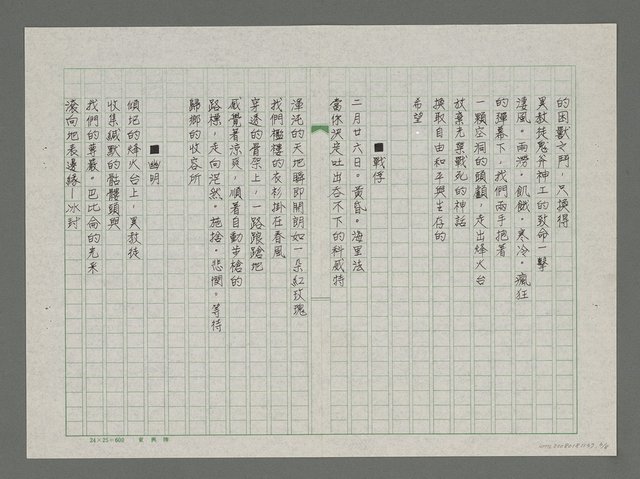 的困獸之鬥，只換得
異教徒鬼斧神工的致命一擊
淒風。雨澇。飢餓。寒冷。瘋狂
的彈幕下，我們兩手抱著
一顆空洞的頭顱，走出烽火台
放棄光榮戰死的神話
換取自由和平與生存的
希望。
■戰俘
二月廿六日。黃昏。海里法
當你決定吐出吞不下的科威特
渾沌的天地瞬即開朗如一朵紅玫瑰
我們襤褸的衣衫掛在春風
穿透的骨架上，一路踉蹌地
感覺著涼爽，順著自動步槍的
路標，走向茫然。施捨。悲憫。等待
歸鄉的收容所
■幽明
傾圮的烽火台上，異教徒
收集緘默的骷髏頭與
我們的華嚴。巴比倫的光采
滾向地表邊緣—冰封
24×25=600